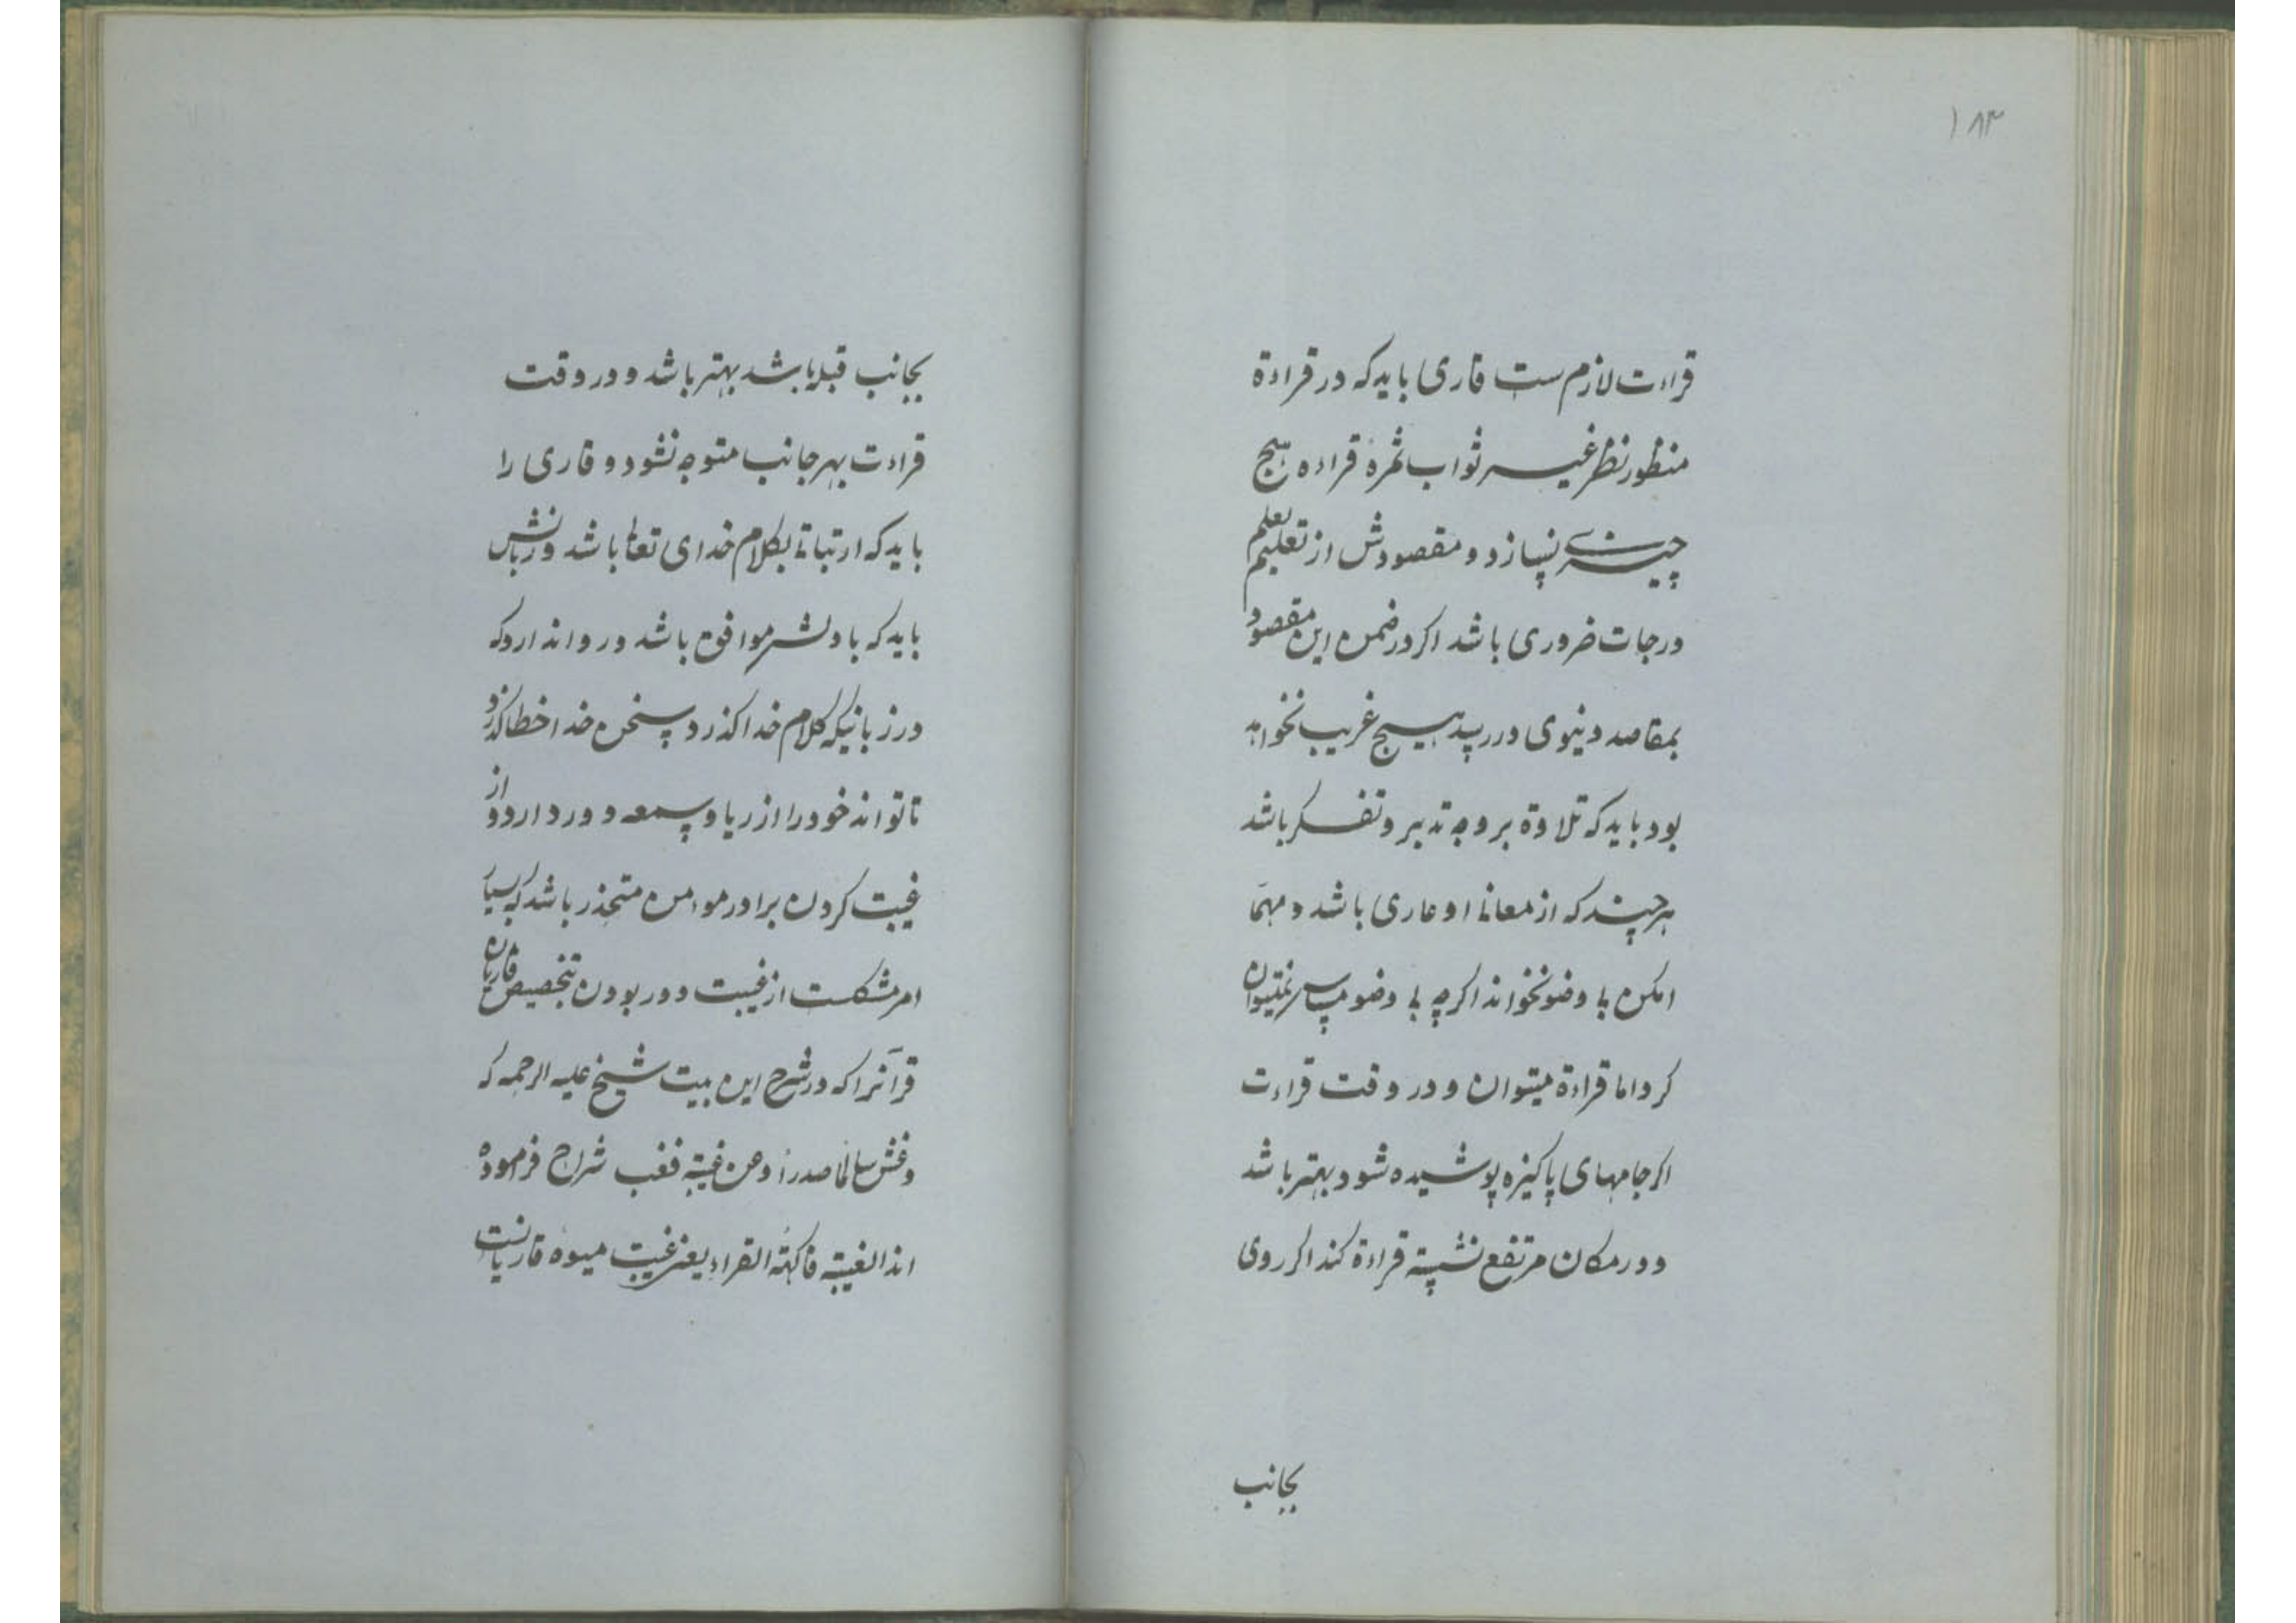 ۱۸۳
قراءت لازم ست قاری باید که در قراءة
منظور نظر غیر ثواب ثمرهٔ قراءه هیچ
چیزی نسازد و مقصودش از تعلیم تعلم
درجات ضروری باشد اکر در ضمن این مقصود
بمقاصد دنیوی در رسد هیچ غریب نخواهد
بود باید که تلاوة بر وجه تدبر و تفکر باشد
هر چند که از معانا او عاری باشد و مهمَا
امکن بی وضو نخواند اکرچه بی وضو مساس نمیتوان
کرد اما قراءة میتوان و در وقت قراءت
اکر جامهای پاکیزه پوشیده شود بهتر باشد
و در مکان مرتفع نشسته قراءة کند اکر روی
بجانب
بجانب قبله باشد بهتر باشد و در وقت
قراءت بهر جانب متوجه نشود و قاری را
باید که ارتباتا بکلام خدای تعالی باشد و زبانش
باید که با دلش موافق باشد و روا ندارد که
در زبانیکه کلام خدا کذرد سخن خدا خطا کذرد
تا تواند خود را از ریا و سمعه دور دارد و از
غیبت کردن برادر موءمن متحذر باشد که بسیار
امر مشکلست از غیبت دور بودن بتخصیص قاریان
قرآنرا که در شرح این بیت شیخ علیه الرحمه که
وعش سالما صدرا وعن غیبة فغب شراح فرموده
اند الغیبة فاکهة القراء یعنی غیبت میوهٔ قاریانست